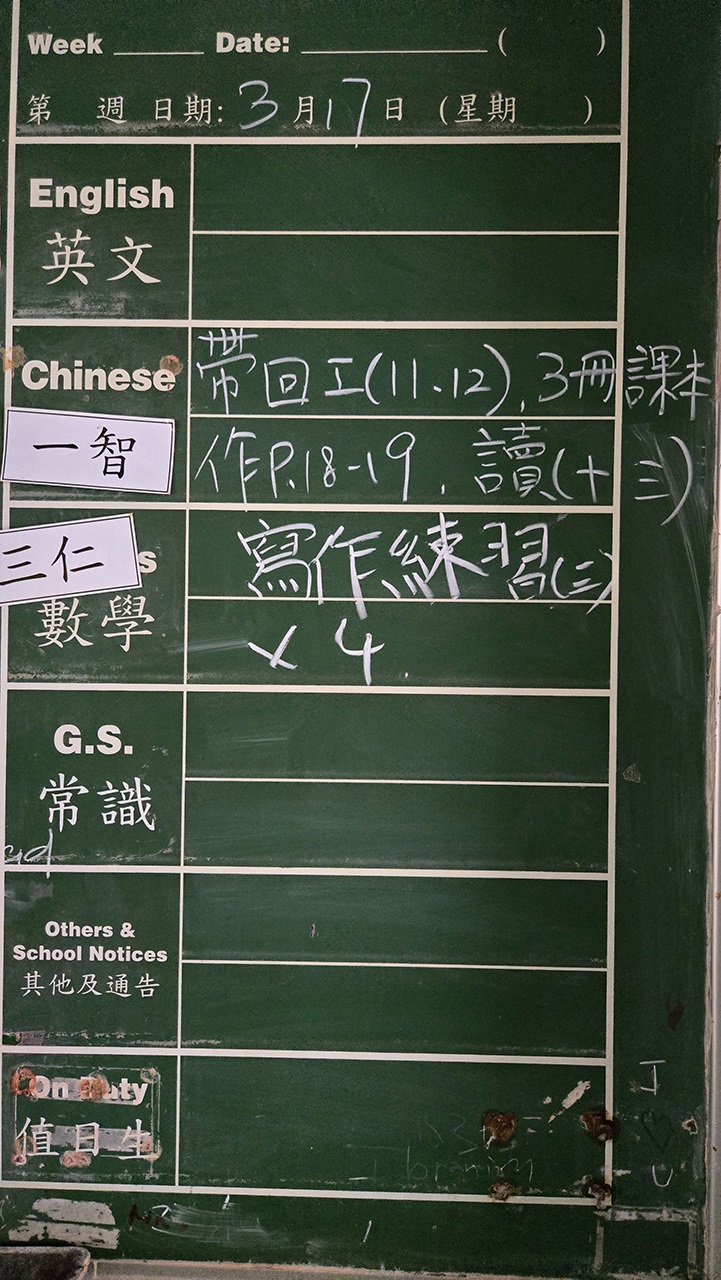 Week ______ Date: ____________ (      )
第 週 日期: 3月17日 (星期 )
English
英文
Chinese
帶回工(11、12), 3冊課本
一智
作P.18-19, 讀(十三)
三仁
s
寫作練習(三)
數學
×4.
G.S.
常識
Others &
School Notices
其他及通告
On Duty
值日生
J
♡
U